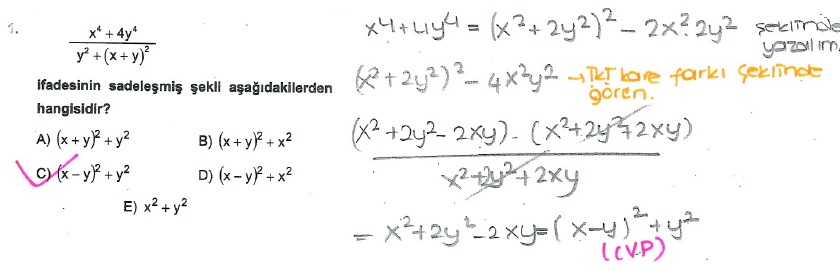 1.
x⁴ + 4y⁴
y² + (x + y)²
ifadesinin sadeleşmiş şekli aşağıdakilerden
hangisidir?
A) (x + y)² + y² B) (x + y)² + x²
C) (x − y)² + y² D) (x − y)² + x²
E) x² + y²
x⁴+4y⁴ = (x²+2y²)² − 2x².2y² şeklinde
yazalım.
(x²+2y²)² − 4x²y² → İki kare farkı şeklinde
gören.
(x²+2y²−2xy).(x²+2y²+2xy)
x²+2y²+2xy
= x²+2y²−2xy=(x−y)²+y²
(CVP)